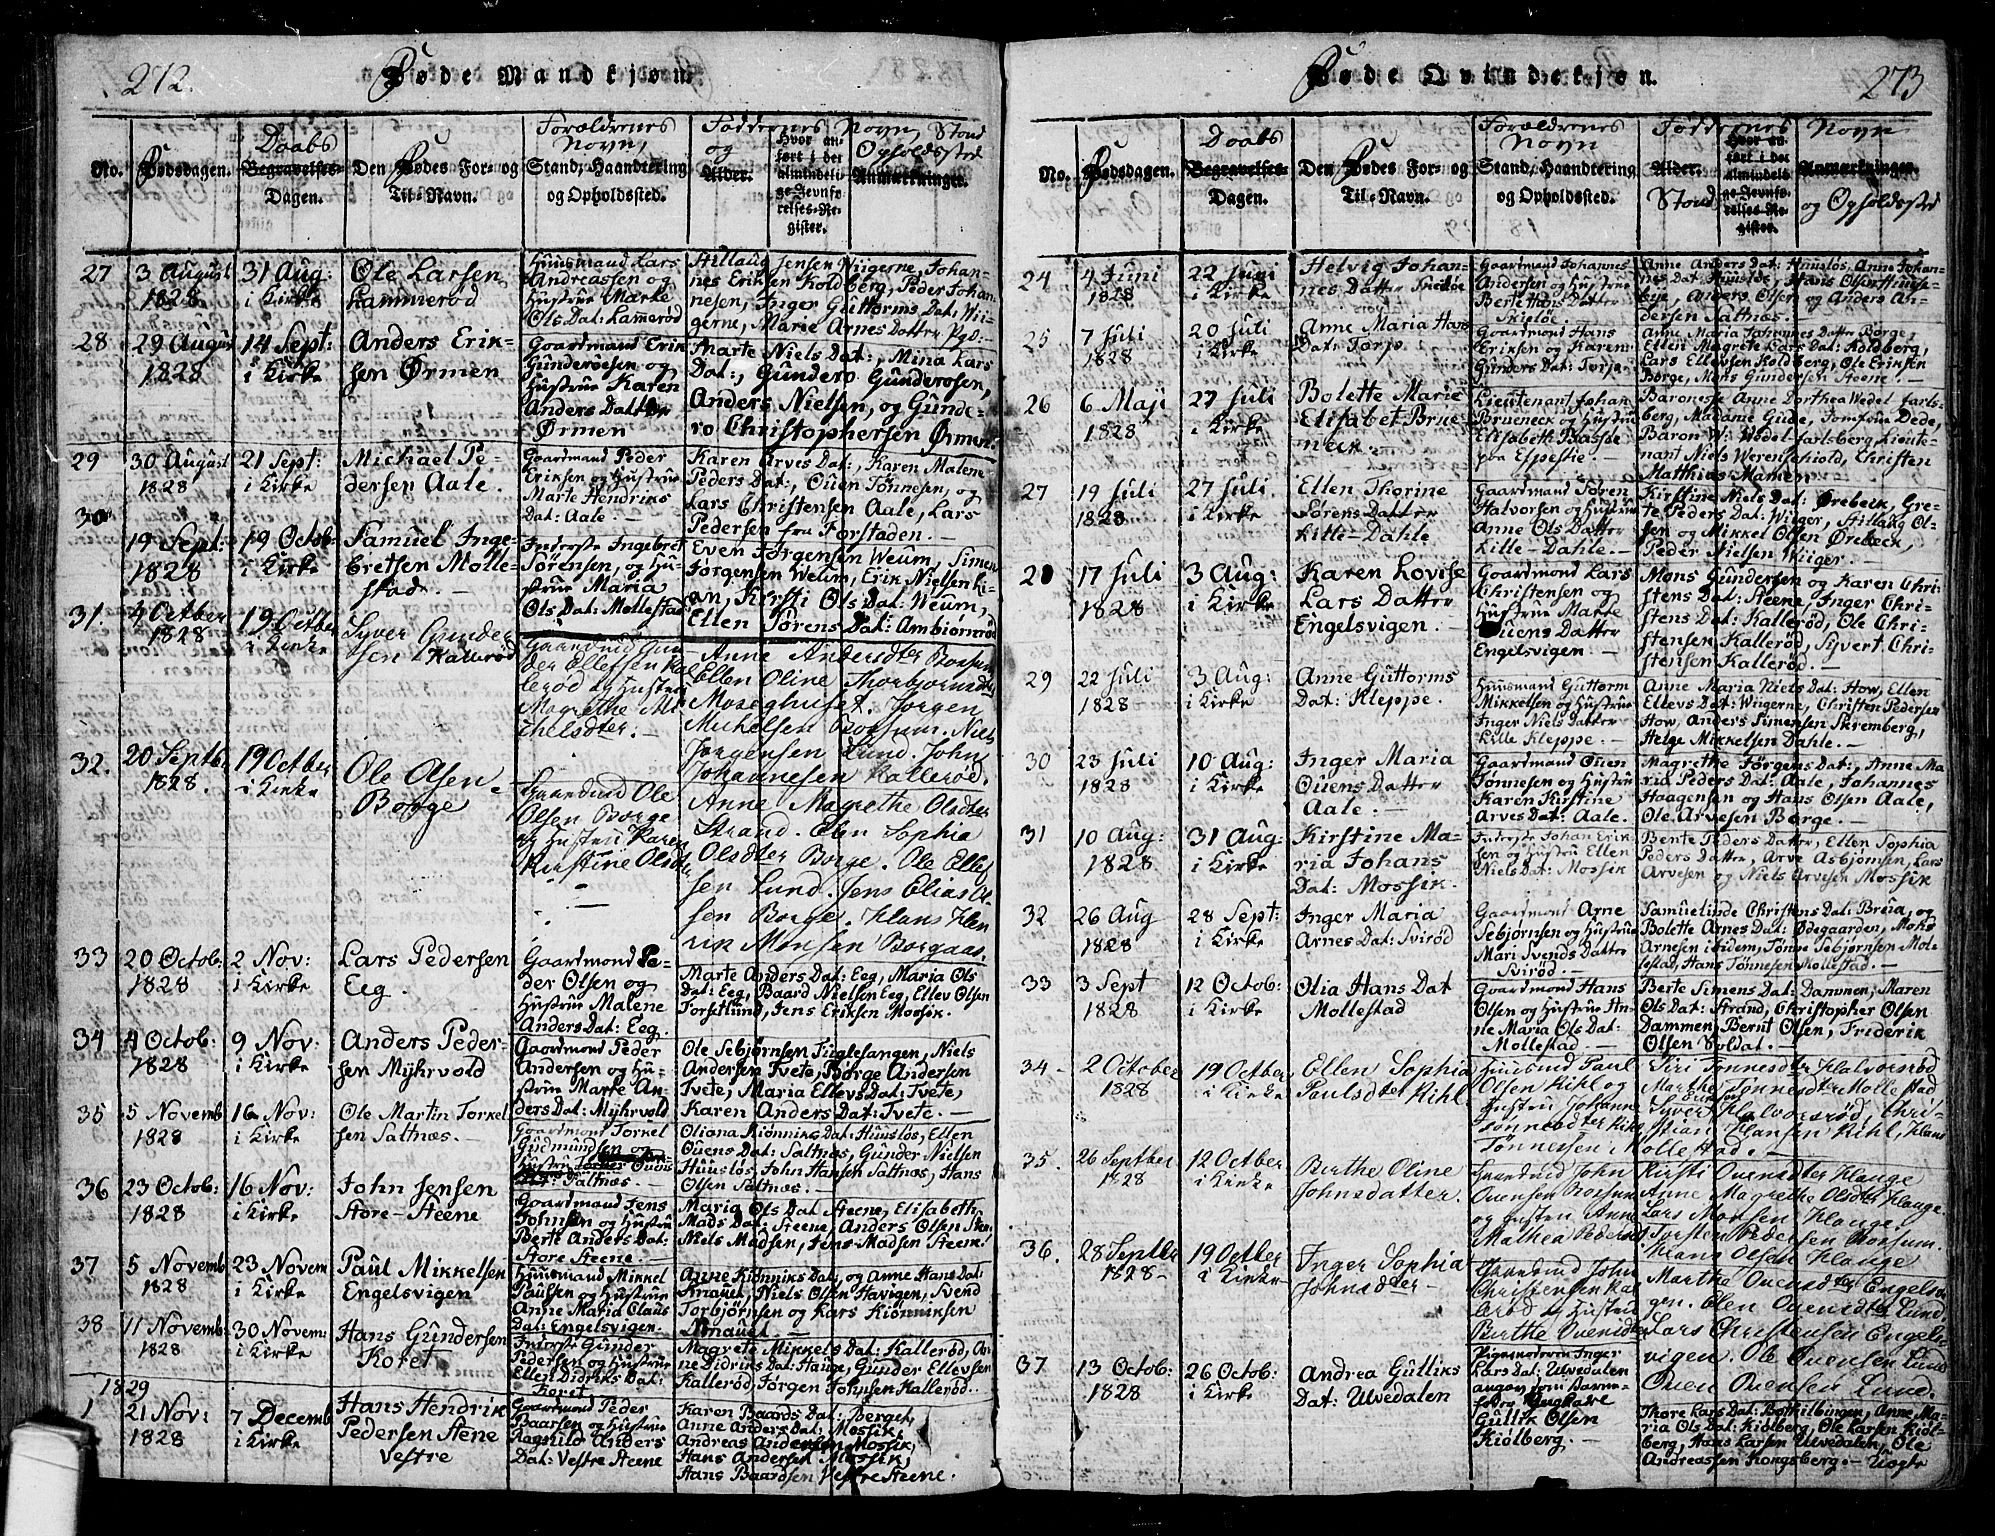 272.
Døde Mandkjøn
No.
Dødsdagen.
Daabs
Begravelses-
Dagen.
Den Dødes For- og
Til-Navn.
Forældrenes
Navn,
Stand, Haandtering
og Opholdssted.
Faddernes Navn, Stand
og Opholdssted
Alder.
Hvor an-
ført i det
almindeli-
ge Jevnfø-
relses-Re-
gister.
Anmærkninger.
27
3 August
1828
31 Aug:
i Kirke
Ole Larsen
Lammerød
Huusmand Lars
Andreassen og
Hustrue Marte
Ols Dat: Lamerød
Hillaug Jensen Wiigerne, Johan-
nes Eriksen Koldberg, Peder Johan-
nesen, Inger Guttorms Dat: Wii-
gerne, Marie Arnes Datter
28
29 August
1828
14 Sept:
i Kirke
Anders Erik-
sen Ørmen
Gaardmand Erik
Gunderøesen og
Hustrue Karen
Anders Datter
Ørmen
Marte Niels Dat:, Mina Lars
Dat:, Gundero Gunderosen,
Anders Nielsen, og Gunde-
ro Christophersen Ørmen.
29
30 August
1828
21 Sept:
i Kirke
Michael Pe-
dersen Aale.
Gaardmand Peder
Eriksen og Hustrue
Marte Hendriks
Dat: Aale. —
Karen Arves Dat:, Karen Malene
Peders Dat:, Ouen Tønnesen, og
Lars Christensen Aale, Lars
Pedersen fra Forstaden. —
30
19 Sept:
1828
19 Octob:
i Kirke
Samuel Inge-
bretsen Molle-
stad. —
Inderste Ingebret
Sørensen, og Hu-
strue Maria
Ols Dat: Mollestad
Even Jørgensen Weum, Simen
Jørgensen Weum, Erik Nielsen Li-
an, Kirsti Ols Dat: Weum,
Ellen Sørens Dat: Ambiørnrød
31.
4 Octber
1828
19 Octber
i Kirke
Syver Gunder
sen Kallerød
Gaardmd Gun
der Ellefsen Kal
lerød og Hustru
Magrethe Mi
chelsdter. —
Anne Andersdter Borsum
Ellen Oline Thorbjornsdter
Moseghuset. Jørgen
Michelsen Borsum. Niels
Jørgensen Lund. John
Johannesen Kallerød.
32.
20 Septb.
1828.
19 Octber
i Kirke
Ole Olsen
Borge
Gaardmd Ole
Olsen Borge
og Hustru Karen
Kirstine Olsdter
Anne Magrethe Olsdter
Strand. Elen Sophia
Olsdter Borge. Ole Ellef
sen Lund. Jens Elias Ol
sen Borge. Hans Hen
rik Monsen Borgaas.
33
20 Octob:
1828
2 Nov:
i Kirke
Lars Pedersen
Eeg.
Gaardmond Pe-
der Olsen og
Hustrue Malene
Anders Dat: Eeg.
Marte Anders Dat: Eeg, Maria Ols
Dat: Eeg, Baard Nielsen Eeg, Ellev Olsen
Torsetlund, Jens Eriksen Mossik.
34
4 Octob:
1828
9 Nov:
i Kirke
Anders Peder-
sen Mÿhrvold
Gaardmond Peder
Andersen og Hu-
strue Marte An-
ders Dat: Mÿhrvold
Ole Sebjørnsen Fuglesangen, Niels
Andersen Tvete, Børge Andersen
Tvete, Maria Ellevs Dat: Tvete,
Karen Anders Dat: Tvete. —
35
5 Novemb
1828
16 Nov:
i Kirke
Ole Martin Torkel
sen Saltnæs. —
Gaardmond Torkel
Gudmundsen og
Hustru Ouens
Saltnæs. —
Oliana Kiønniks Dat: Huusløs, Ellen
Ouens Dat: Saltnæs, Gunder Nielsen
Huusløs, John Hansen Saltnæs, Hans
Olsen Saltnæs. —
36
23 Octob:
1828
16 Nov:
i Kirke
John Jensen
Store-Steene
Gaardmond Jens
Johnsen og Hustrue
Berte Anders Dat:
Store Steene —
Maria Ols Dat Steene, Elisabeth
Mads Dat: Steene, Anders Olsen
Niels Madsen, Jens Madsen Steene.
37
5 Novemb
1828
23 Novem
i Kirke
Paul Mikkelsen
Engelsvigen
Huusmand Mikkel
Paulsen og Hustrue
Anne Maria Claus
Dat: Engelsvigen.
Anne Kiønniks Dat: og Anne Hans Dat:
Knauet, Niels Olsen Havigen, Svend
Torbjørnsen og Lars Kiønniksen
Knauet —
38
11 Novemb:
1828
30 Novem:
i Kirke
Hans Gundersen
Koret
Inderste Gunder
Pedersen og Hustrue
Ellen Didriks Dat:
Koret
Magrete Mikkels Dat: Kallerød, An-
ne Didriks Dat: Hauge, Gunder Ellevsen
Kallerød, Jørgen Johnsen Kallerød.
1829
1
21 Nov:
1828
7 Decemb
i Kirke
Hans Hendrik
Pedersen Stene
Vestre
Gaardmond Peder
Baarsen og Hustrue
Ragnild Anders
Dat: Vestre Steene
Karen Baards Dat: Berget,
Anne Anders Dat: Mossik,
Andreas Andersen Mossik,
Hans Andersen Mossik,
Hans Baardsen Vestre Steene.
273
Døde Qvindekjøn.
No.
Dødsdagen.
Daabs
Begravelses-
Dagen.
Den Dødes For- og
Til-Navn.
Forældrenes
Navn
Stand, Haandtering
og Opholdssted.
Faddernes Navn
Alder.
Stand
Hvor an-
ført i det
almindeli-
ge Jevnfø-
relses-Re-
gister.
Anmærkninger.
og Opholdssted
24
4 Juni
1828
22 Juni
i Kirke
Helvig Johan-
nes Datter Skieløe
Gaardmand Johannes
Andersen og Hustrue
Berte Hans Datter
Skieløe. —
Anne Anders Dat: Huusløs, Anne Johan-
nes Dat: Huusløe, Hans Olsen Huuse-
bye, Anders Olsen og Anders An-
dersen Saltnæs. —
25
7 Juli
1828
20 Juli
i Kirke
Anne Maria Hans
Dat: Torp. —
Gaardmond Hans
Eriksen og Karen
Gunders Dat: Torp.
Anne Maria Johannes Datter Borge
Ellen Magrete Lars Dat: Koldberg,
Lars Ellevsen Koldberg, Ole Eriksen
Borge, Mons Gundersen Steene. —
26
6 Maji
1828
27 Juli
i Kirke
Bolette Marie
Elisabet Brue
neck. —
Lieutenant Johan
Brueneck og Hustrue
Elisabeth Basse
paa Elpestie. —
Baronesse Anne Dorthea Wedel Jarls-
berg, Madame Gude, Jomfrue Dede,
Baron W: Wedel Jarlsberg, Lieute-
nant Niels Werenschiold, Christen
Matthias Mamen
27
19 Juli
1828
27 Juli
i Kirke
Ellen Thorine
Sørens Datter
Lille-Dahle
Gaardmand Søren
Halvorsen og Hustrue
Anne Ols Datter
Lille-Dahle. —
Kirstine Niels Dat: Ørebeck, Gre-
te Peders Dat: Wiiger, Hillaug Ol-
sen og Mikkel Olsen Ørebeck,
Peder Nielsen Wiiger. —
28
17 Juli
1828
3 Aug:
i Kirke
Karen Lovise
Lars Datter
Engelsvigen. —
Gaardmond Lars
Christensen og
Hustrue Marte
Ouens Datter
Engelsvigen. —
Mons Gundersen og Karen Chri-
stens Dat: Steene, Inger Chri-
stens Dat: Kallerød, Ole Chri-
stensen Kallerød, Syvert Chri-
stensen Kallerød. —
29
22 Juli
1828
3 Aug:
i Kirke
Anne Guttorms
Dat: Kleppe. —
Huusmand Guttorm
Mikkelsen og Hustrue
Inger Niels Datter
Lille Kleppe. —
Anne Maria Niels Dat: How, Ellen
Ellevs Dat: Wiigerne, Christen Pedersen
How, Anders Simensen Skremberg,
Helge Mikkelsen Dahle. —
30
23 Juli
1828
10 Aug:
i Kirke
Inger Maria
Ouens Datter
Aale. —
Gaardmond Ouen
Tønnesen og Hustrue
Karen Kirstine
Arves Dat: Aale.
Magrethe Jørgens Dat:, Anne Ma
ria Peders Dat: Aale, Johannes
Haagensen og Hans Olsen Aale,
Ole Arvesen Borge. —
31
10 Aug:
1828
31 Aug:
i Kirke
Kirstine Ma-
ria Johans
Dat: Mossik.
Inderste Johan Erik-
sen og Hustru Ellen
Niels Dat: Mossik
Bente Peders Datter, Ellen Sophia
Peders Datter, Arve Asbjørnsen, Lars
Arvesen og Niels Arvesen Mossik
32
26 Aug
1828
28 Sept:
i Kirke
Inger Maria
Arnes Dat: Svirød
Gaardmond Arne
Sebjørnsen og Hustrue
Mari Svends Datter
Svirød. —
Samuelinde Christens Dat: Breia, og
Bolette Arnes Dat: Ødegaarden, Mons
Arnesen ibidem, Tønne Sebjørnsen Mol-
lestad, Hans Tønnesen Mollestad. —
33
3 Sept
1828
12 Octob:
i Kirke
Olia Hans Dat
Mollestad
Gaardmond Hans
Olsen og Hustrue An-
ne Maria Ols Dat:
Mollestad —
Berte Simens Dat: Dammen, Maren
Ols Dat: Strand, Christopher Olsen
Dammen, Bernt Olsen, Friderik
Olsen Soldat. —
34 -
2 October
1828
19 Octber
i Kirke
Ellen Sophia
Paulsdter Kihl
Huusmd Paul
Olsen Kihl og
Hustru Johanne
Tønnesdter Kihl
Siri Tønnesdter Halvorsrød
Marthe Tønnesdter Mollestad
Syver Halvorsrød, Chri-
stian Hansen Kihl, Hans
Tønnessen Mollestad. —
35.
26 Septber
1828
12 Octber
i Kirke
Berthe Oline
Johnsdatter.
Gaardmd John
Ouensen Borsum
og Hustru Anne
Mathea Pedersd
Kirsti Ouensdter Hauge
Anne Magrethe Olsdter Hauge.
Lars Monsen Hauge
Torsten Pedersen Borsum.
Hans Olsen Hauge
36.
28 Septbr
1828 -
19 Octber
i Kirke
Inger Sophia
Johnsdter —
Gaardmd John
Christensen Kal
lerød og Hustru
Berthe Ouensdter
Marthe Ouensdter Engelsvi
gen. Elen Ouensdter Lund.
Lars Christensen Engels
vigen. Ole Ouensen Lund
Ouen Ouensen Lund.
37
13 Octob:
1828
26 Octob:
i Kirke
Andrea Gulliks
Dat: Ulvedalen
Pigemoderen Inger
Lars Dat: Ulvedalen
angav som Barne-
fader Ungkarl
Gullik Olsen
Kiølberg. —
Thore Lars Dat: Bothilbingen, Anne Ma-
ria Ols Dat: Kiølberg, Ole Larsen Kiøl-
berg, Hans Larsen Ulvedalen, Ole
Andreassen Kongsberg. — Uægte